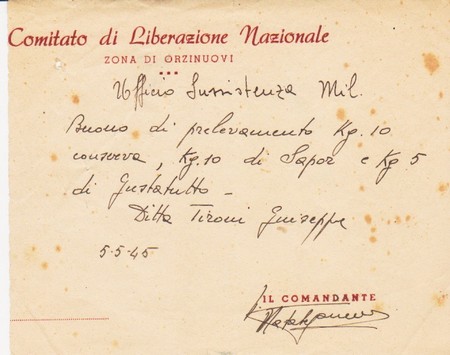 Comitato di Liberazione Nazionale
ZONA DI ORZINUOVI
Ufficio Sussistenza Mil.
Buono di prelevamento Kg. 10
conserva, Kg. 10 di Sapor e Kg 5
di Gustatutto -
Ditta Tironi Guiseppe
5-5-45
IL COMANDANTE